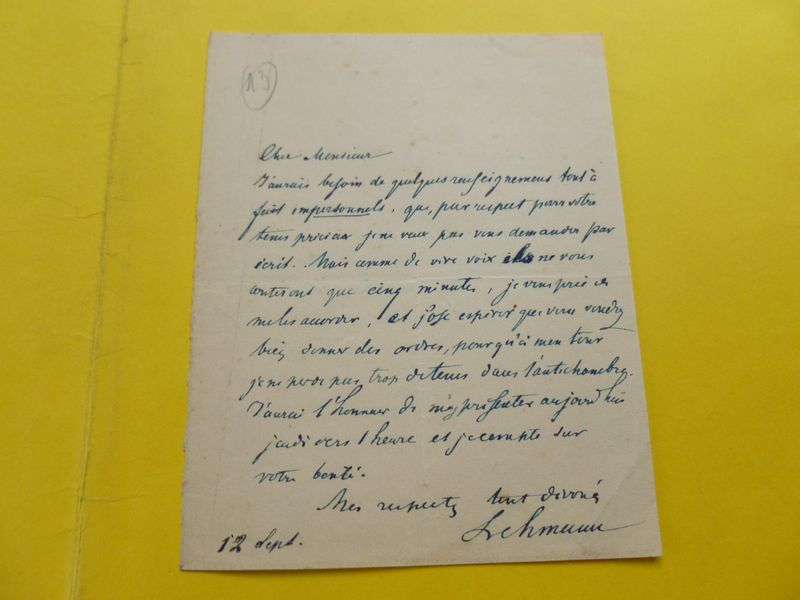 13
Cher Monsieur
J'aurais besoin de quelques renseignemens tout à
fait impersonnels, que, par respect pour votre
tems précieux je ne veux pas vous demander par
écrit. Mais comme de vive voix ils ne vous
couteront que cinq minutes, je vous prie de
me les accorder, et j'ose espérer que vous voudrez
bien donner des ordres, pour qu'à mon tour
je ne perde pas trop de tems dans l'antichambre.
J'aurai l'honneur de m'y présenter aujourd'hui
jeudi vers 1 heure et je compte sur
votre bonté.
Mes respects tout dévoués
Lehmann
12 Sept.